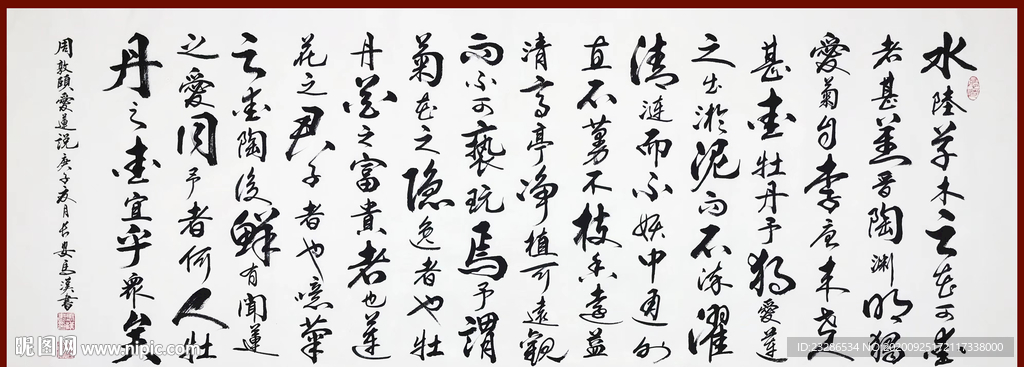 水陸草木之花可愛
者甚蕃晋陶渊明獨
愛菊自李唐来世人
甚愛牡丹予獨愛蓮
之出淤泥而不染濯
清漣而不妖中通外
直不蔓不枝香遠益
清亭亭净植可遠觀
而不可褻玩焉予謂
菊花之隱逸者也牡
丹花之富貴者也蓮
花之君子者也噫菊
之愛陶後鮮有聞蓮
之愛同予者何人牡
丹之愛宜乎衆矣
周敦頤愛蓮説庚子夏月長安漢書
昵图网 www.nipic.com
ID:23286534 NO:20200925172117338000